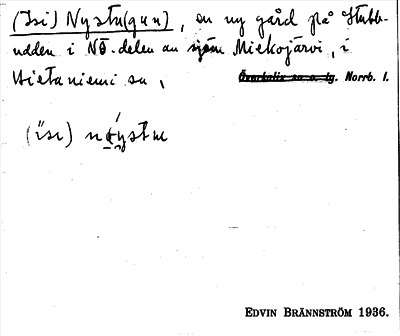 (Isi) Nystu(gun), en ny gård på Stubb-
udden i NÖ. delen av sjön Miekojärvi, i
Hietaniemi sn,
Överkalix sn o. tg. Norrb. l.
(ïsı)
EDVIN BRÄNNSTRÖM 1936.